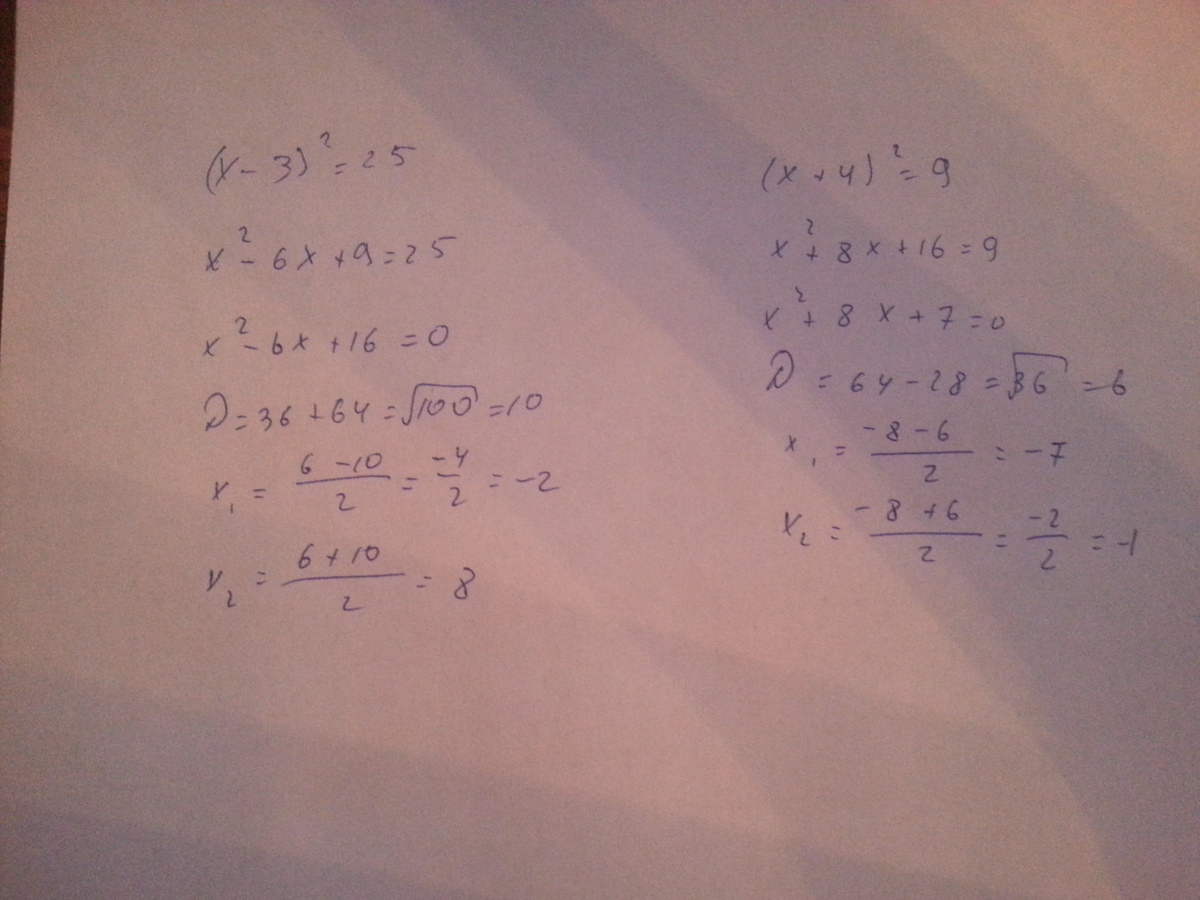 (x - 3)² = 25
x² - 6x + 9 = 25
x² - 6x + 16 = 0
D = 36 + 64 = √100 = 10
x₁ = (6 - 10)/2 = -4/2 = -2
x₂ = (6 + 10)/2 = 8
(x + 4)² = 9
x² + 8x + 16 = 9
x² + 8x + 7 = 0
D = 64 - 28 = √36 = 6
x₁ = (-8 - 6)/2 = -7
x₂ = (-8 + 6)/2 = -2/2 = -1